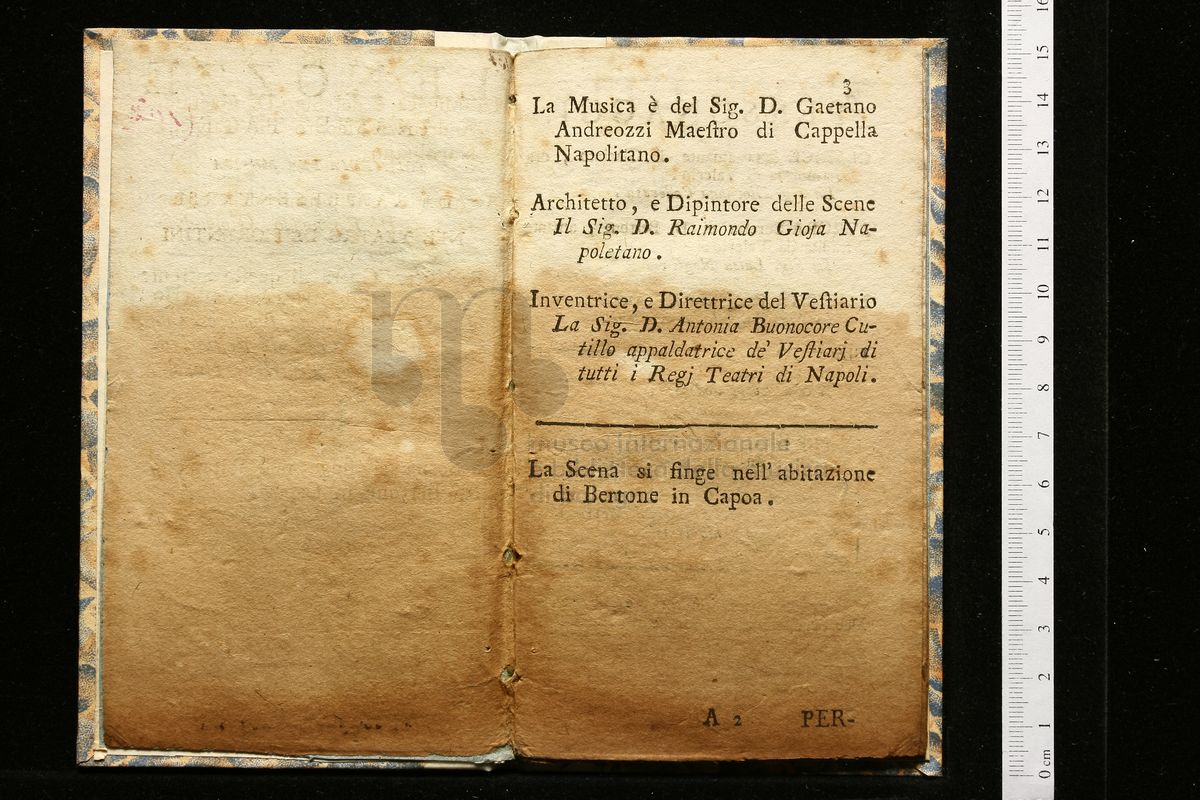 3
La Musica è del Sig. D. Gaetano
Andreozzi Maeſtro di Cappella
Napolitano.
Architetto, e Dipintore delle Scene
Il Sig. D. Raimondo Gioja Na-
poletano.
Inventrice, e Direttrice del Veſtiario
La Sig. D. Antonia Buonocore Cu-
tillo appaldatrice de' Veſtiarj di
tutti i Regj Teatri di Napoli.
museo internazionale
La Scena si finge nell' abitazione
di Bertone in Capoa.
A 2 PER-
16
15
14
13
12
11
10
9
8
7
6
5
4
3
2
1
0 cm